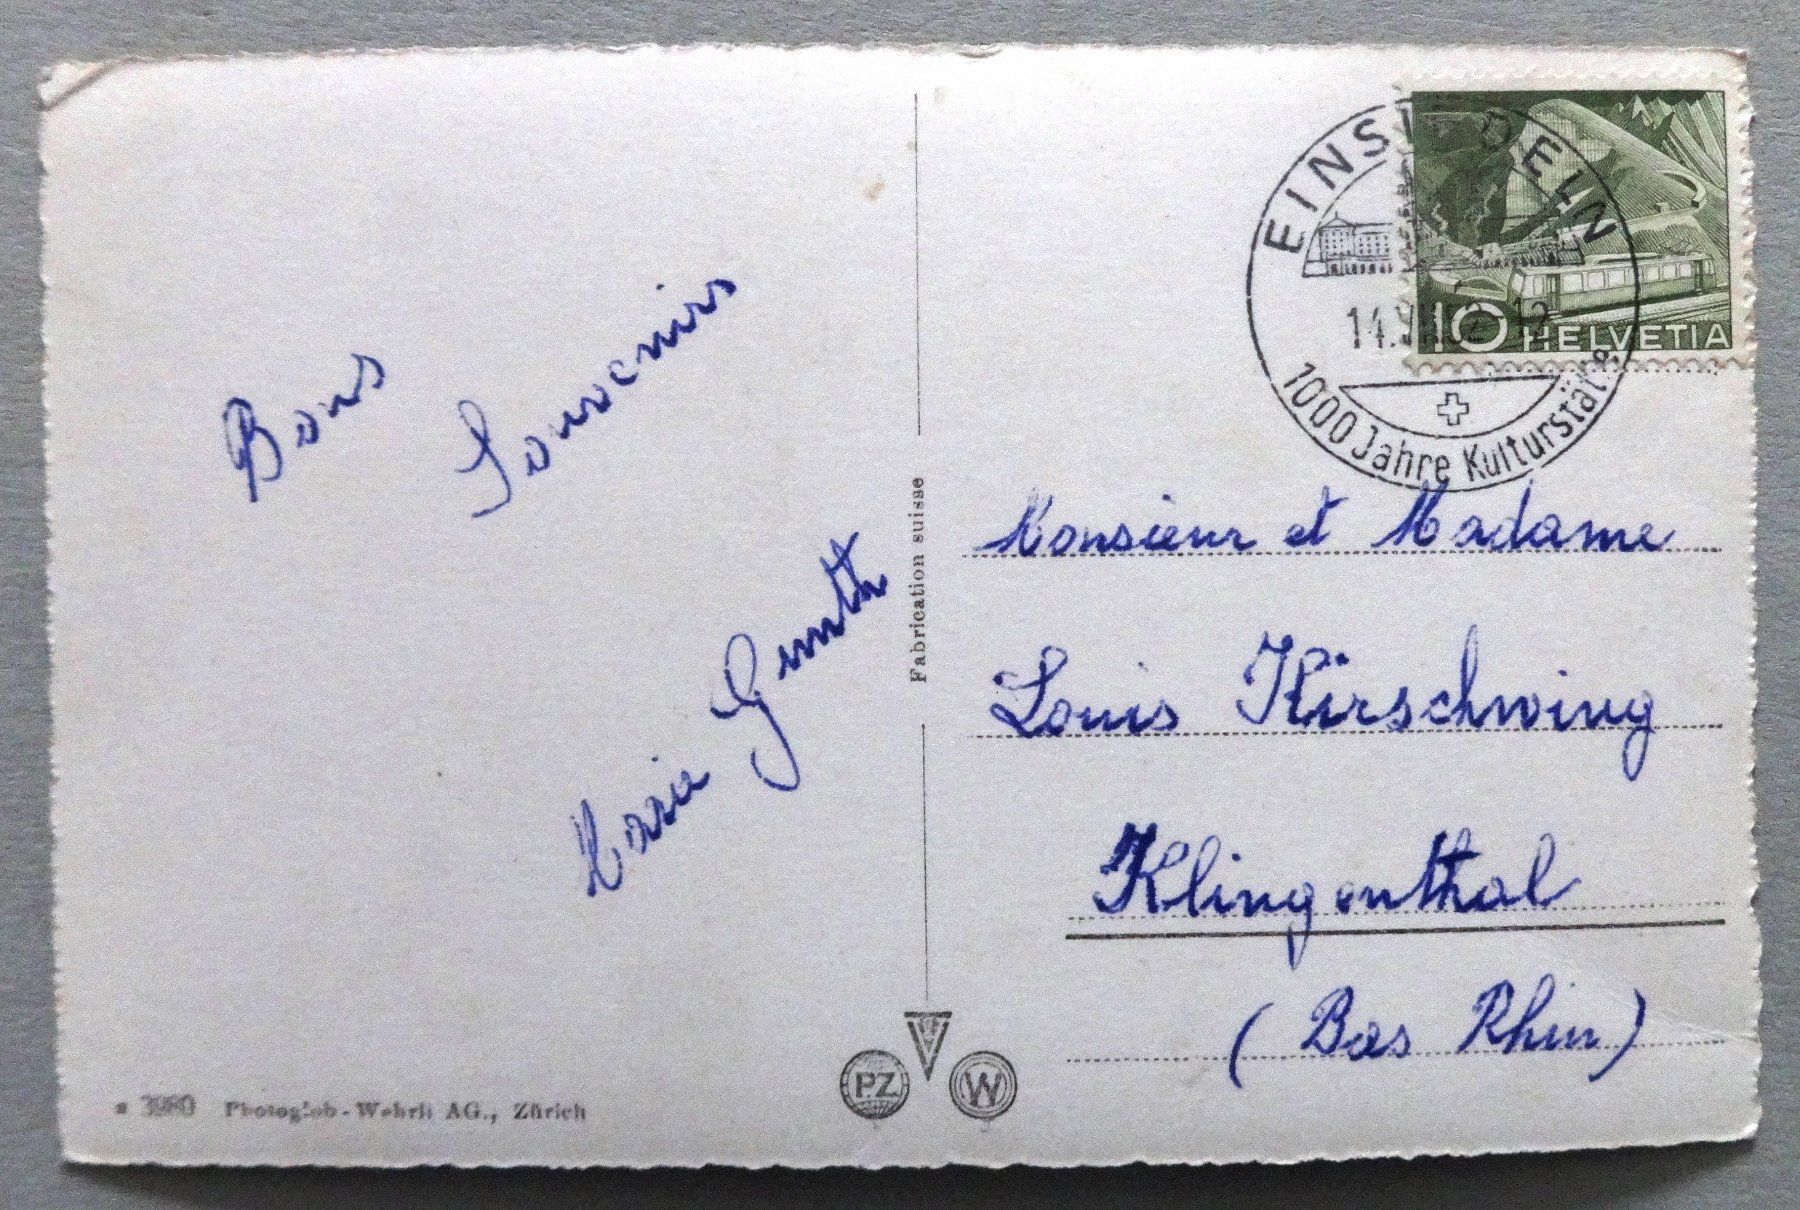 Bons Souvenirs
Marie Gunth
3980 Photoglob-Wehrli AG., Zürich
Fabrication suisse
PZ
W
EINSIEDELN
1000 Jahre Kulturstätte
10 HELVETIA
Monsieur et Madame
Louis Kirschwing
Klingenthal
(Bas Rhin)